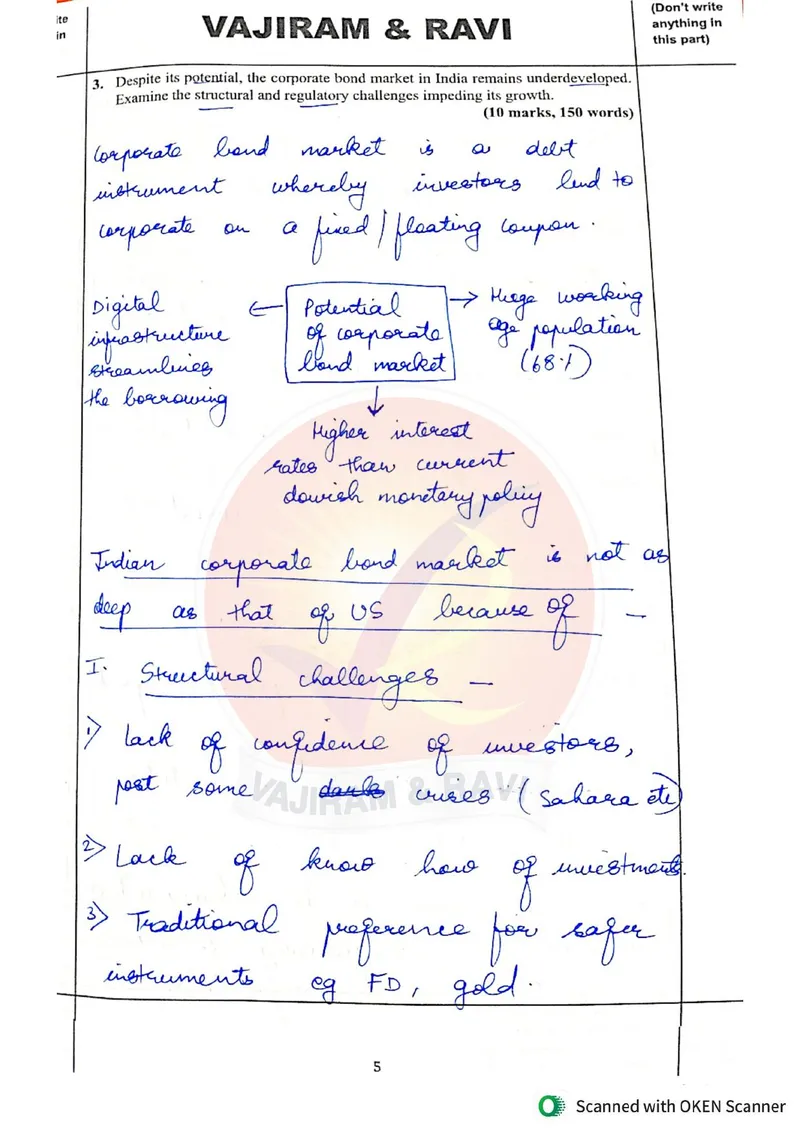 ite
in
VAJIRAM & RAVI
(Don't write
anything in
this part)
3. Despite its potential, the corporate bond market in India remains underdeveloped.
Examine the structural and regulatory challenges impeding its growth.
(10 marks, 150 words)
Corporate bond market is a debt
instrument whereby investors lend to
corporate on a fixed / floating coupon.
Digital
infrastructure
streamlines
the borrowing
←
Potential
of corporate
bond market
→ Huge working
age population
(68%)
↓
Higher interest
rates than current
dovish monetary policy
Indian corporate bond market is not as
deep as that of US because of —
I. Structural challenges —
1) Lack of confidence of investors,
post some crises (Sahara etc)
VAJIRAM & RAVI
2) Lack of know how of investments.
3) Traditional preference for safer
instruments eg FD, gold.
5
Scanned with OKEN Scanner